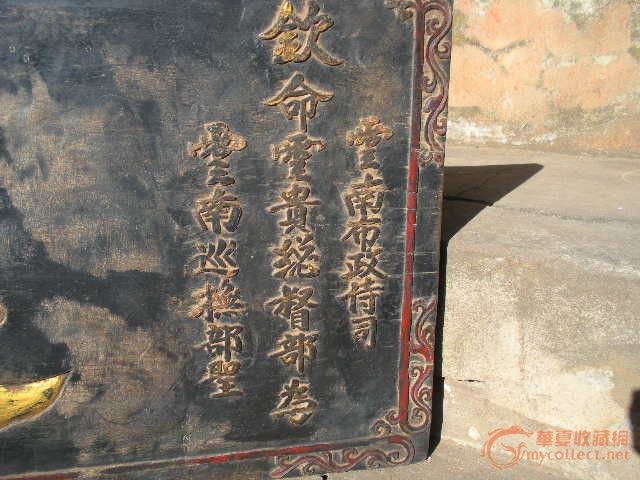 雲南布政侍司
欽命雲貴總督部為
雲南巡撫部聖
華夏收藏網
mycollect.net